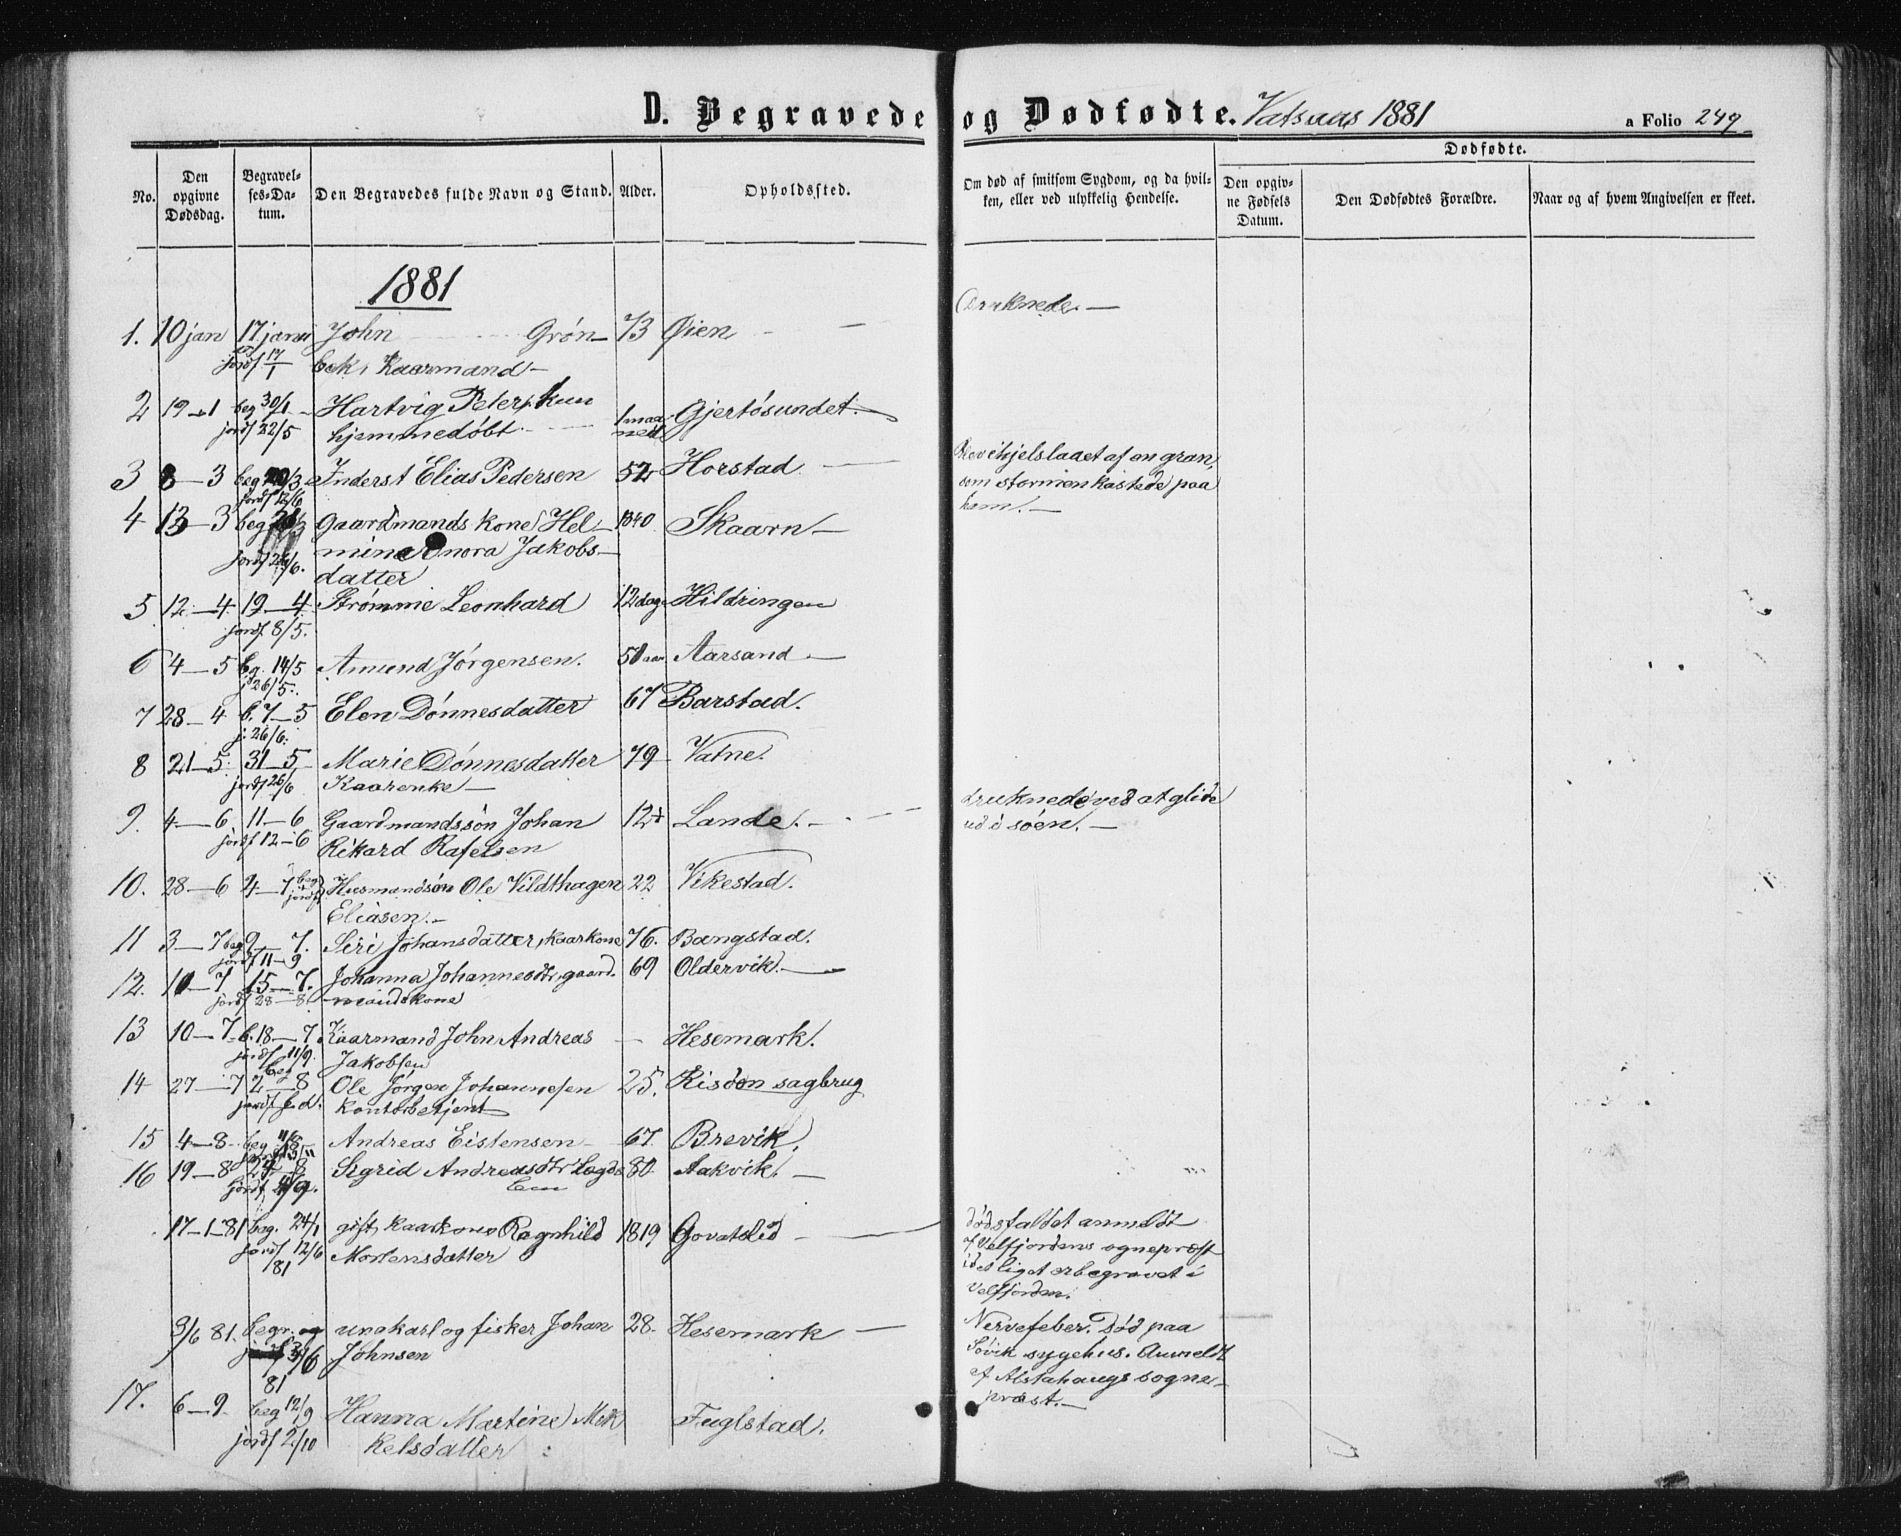 D. Begravede og Dødfødte. Vatsaas 1881
a Folio 249
No.
Den opgivne Dødsdag.
Begravelses-Datum.
Den Begravedes fulde Navn og Stand.
Alder.
Opholdssted.
Om død af smitsom Sygdom, og da hvilken, eller ved ulykkelig Hendelse.
Dødfødte.
Den opgivne Fødsels Datum.
Den Dødfødtes Forældre.
Naar og af hvem Angivelsen er skeet.
1881
1. 10 jan 17 janu John Grøn- 73 Øien - Druknede. -
jordf 17/1 bek, Kaarmand -
2 19-1 beg 30/1 Hartvig Peter, kun 1 maa- Gjertøsundet.
jordf 22/5 hjemmedøbt. ned
3 8-3 beg 20/3 Inderst Elias Pedersen 52 Horstad - Blev ihjelslaaet af en gran,
jordf 12/6 som stormen kastede paa
4 13-3 beg Gaardmands kone Hel- 1840 Skaarn - ham. -
jordf 26/6. mine nora Jakobs-
datter
5 12-4. 19-4 Strømme Leonhard 12 dage Hildringen
jordf 8/5.
6 4-5 bg. 14/5 Amund Jørgensen. 50 aar Aarsand -
j 26/5.
7 28-4 b. 7-5 Elen Dønnesdatter 67 Barstad.
j. 26/6.
8 21-5. 31-5 Marie Dønnesdatter 79 Vatne.
jordf 26/6 Kaarenke -
9. 4-6 11-6 Gaardmandssøn Johan 12 Lande. - druknede ved at glide
jordf 12-6 Rikard Rafelsen ud i søen. -
10. 28-6 4-7 beg jordf Husmandsøn Ole Vildthagen 22 Vikestad.
Eliasen. -
11 3-7 beg 9-7. Siri Johansdatter, kaarkone 76. Bangstad.
jordf 11-9
12. 10-7 15-7. Johanna Johannesdtr, gaard- 69 Oldervik. -
jordf 28-8. mandskone
13 10-7 b. 18-7 Kaarmand John Andreas - Hesemark.
jordf 11/9. Jakobsen
14 27-7 beg 2-8 Ole Jørgen Johannesen 25. Risøen sagbrug
jordf s.d. kontorbetjent
15 4-8 beg 11/8 Andreas Eistensen - 67 Brevik.
16 19-8 24-8 Sigrid Andreasdtr Lægds 80 Aakvik. -
jordf /9. lem
17-1-81 beg. 24/1 gift kaarkone Ragnhild 1819 Govatslid - dødsfaldet anmeldt
jordf 12/6 81 Mortensdatter f Velfjordens sognepræst
idet liget er begravet i
Velfjorden.
3/6 81. begr. og ungkarl og fisker Johan 28. Hesemark - Nervefeber. Død paa
jordf /6 81 Johnsen Søvik sygehus. Anmeldt
af Alstahaugs sogne-
præst. -
17. 6-9 beg 12/9 Hanna Martine Mik Fuglstad.
jordf 2/10 kelsdatter